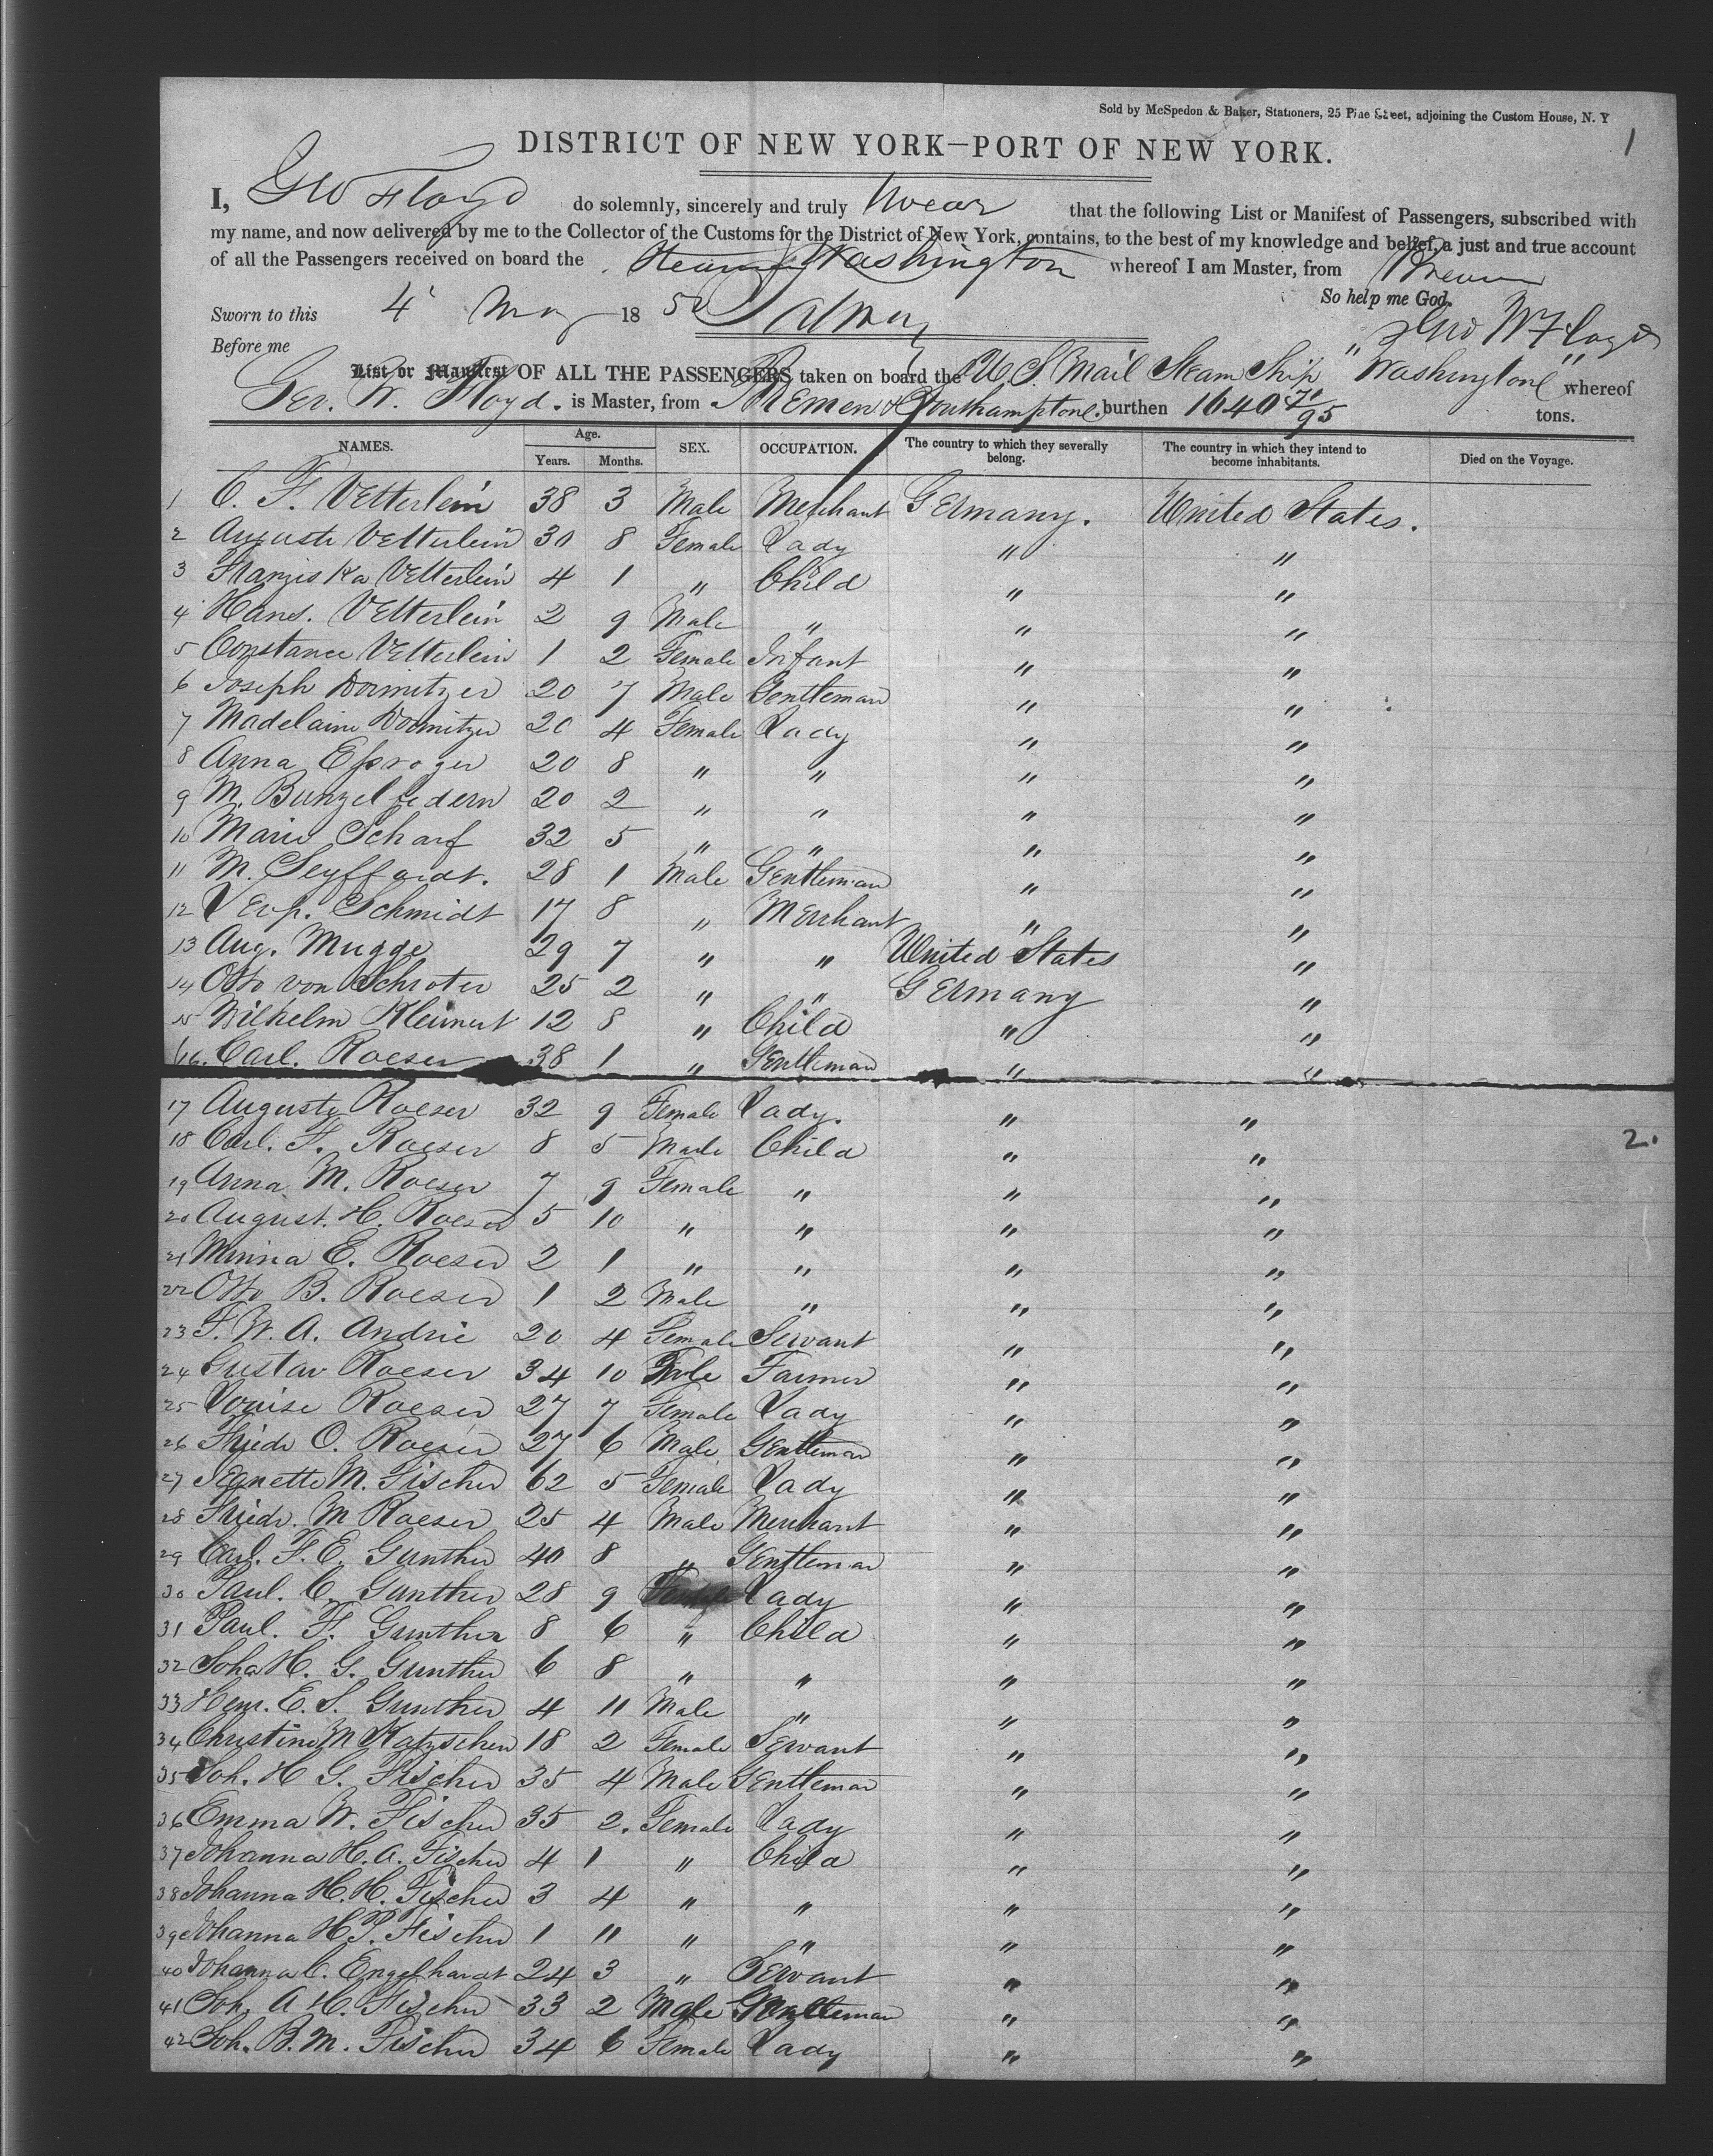 Sold by McSpedon & Baker, Stationers, 25 Pine Street, adjoining the Custom House, N. Y
1
DISTRICT OF NEW YORK—PORT OF NEW YORK.
I, Geo W Floyd do solemnly, sincerely and truly swear that the following List or Manifest of Passengers, subscribed with
my name, and now delivered by me to the Collector of the Customs for the District of New York, contains, to the best of my knowledge and belief, a just and true account
of all the Passengers received on board the Steamship Washington whereof I am Master, from Bremen
So help me God.
Sworn to this 4' May 1850
Geo W Floyd
Before me
List or Manifest OF ALL THE PASSENGERS taken on board the U S Mail Steam Ship "Washington" whereof
Geo. W. Floyd. is Master, from Bremen & Southampton burthen 1640 71/95 tons.
NAMES. Age. Years. Months. SEX. OCCUPATION. The country to which they severally belong. The country in which they intend to become inhabitants. Died on the Voyage.
1 C. F. Vetterlein 38 3 Male Merchant Germany. United States.
2 Auguste Vetterlein 30 8 Female Lady " "
3 Franziska Vetterlein 4 1 " Child " "
4 Hans. Vetterlein 2 9 Male " " "
5 Constance Vetterlein 1 2 Female Infant " "
6 Joseph Dormitzer 20 7 Male Gentleman " "
7 Madelaine Dormitzer 20 4 Female Lady " "
8 Anna 20 8 " " " "
9 M. Bunzel Federn 20 2 " " " "
10 Marie Scharf 32 5 " " " "
11 M. Seyffardt. 28 1 Male Gentleman " "
12 Schmidt 17 8 " Merchant " "
13 Aug. Mugge 29 7 " " United States "
14 Otto von Schroter 25 2 " " Germany "
15 Wilhelm Kleinert 12 8 " Child " "
16. Carl. Roeser 38 1 " Gentleman " "
17 Auguste Roeser 32 9 Female Lady. " "
18 Carl. F. Roeser 8 5 Male Child " " 2.
19 Anna M. Roeser 7 9 Female " " "
20 August. H. Roeser 5 10 " " " "
21 Minna E. Roeser 2 1 " " " "
22 Otto B. Roeser 1 2 Male " " "
23 F. W. A. Andrie 20 4 Female Servant " "
24 Gustav Roeser 34 10 Male Farmer " "
25 Louise Roeser 27 7 Female Lady " "
26 Friedr O. Roeser 27 6 Male Gentleman " "
27 Jeanette M. Fischer 62 5 Female Lady " "
28 Friedr. M Roeser 25 4 Male Merchant " "
29 Carl. F. E. Gunther 40 8 " Gentleman " "
30 Paul. C. Gunther 28 9 Female Lady " "
31 Paul. F. Gunther 8 6 " Child " "
32 Joha H. G. Gunther 6 8 " " " "
33 Henr. E. S. Gunther 4 11 Male " " "
34 Christine M 18 2 Female Servant " "
35 Joh. H G. Fischer 35 4 Male Gentleman " "
36 Emma W. Fischer 35 2. Female Lady " "
37 Johanna H. A. Fischer 4 1 " Child " "
38 Johanna H. H. Fischer 3 4 " " " "
39 Johanna H P. Fischer 1 11 " " " "
40 Johanna C. Engelhardt 24 3 " Servant " "
41 Joh. A H. Fischer 33 2 Male Gentleman " "
42 Joh. B. M. Fischer 34 6 Female Lady " "